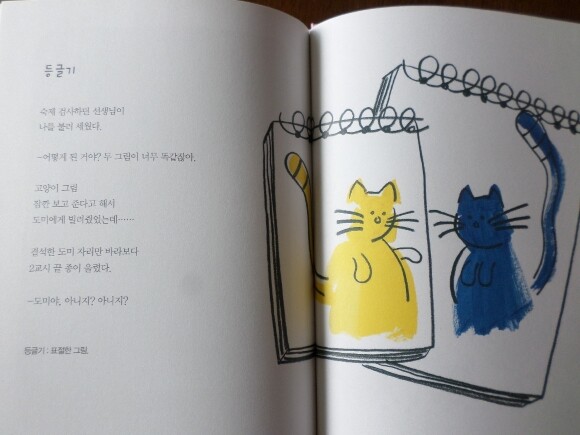 등글기
숙제 검사하던 선생님이
나를 불러 세웠다.
-어떻게 된 거야? 두 그림이 너무 똑같잖아.
고양이 그림
잠깐 보고 준다고 해서
도미에게 빌려줬었는데……
결석한 도미 자리만 바라보다
2교시 끝 종이 울렸다.
-도미야, 아니지? 아니지?
등글기 : 표절한 그림.